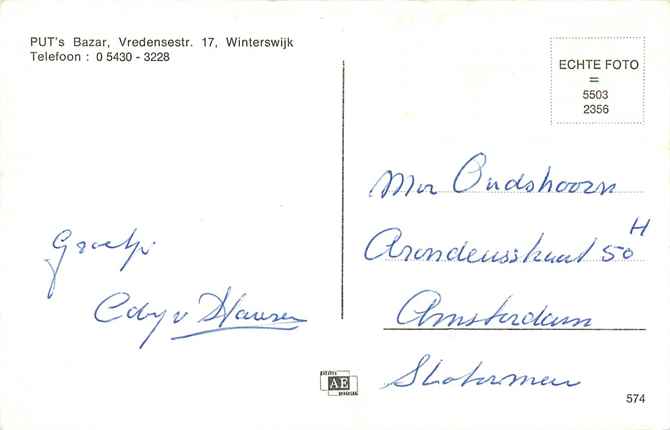 PUT's Bazar, Vredensestr. 17, Winterswijk
Telefoon : 0 5430 - 3228
ECHTE FOTO
=
5503
2356
Groetjs
Coby v
Mvr Oudshoorn
Arondeusstraat 50 H
Amsterdam
Slotermeer
AE
574